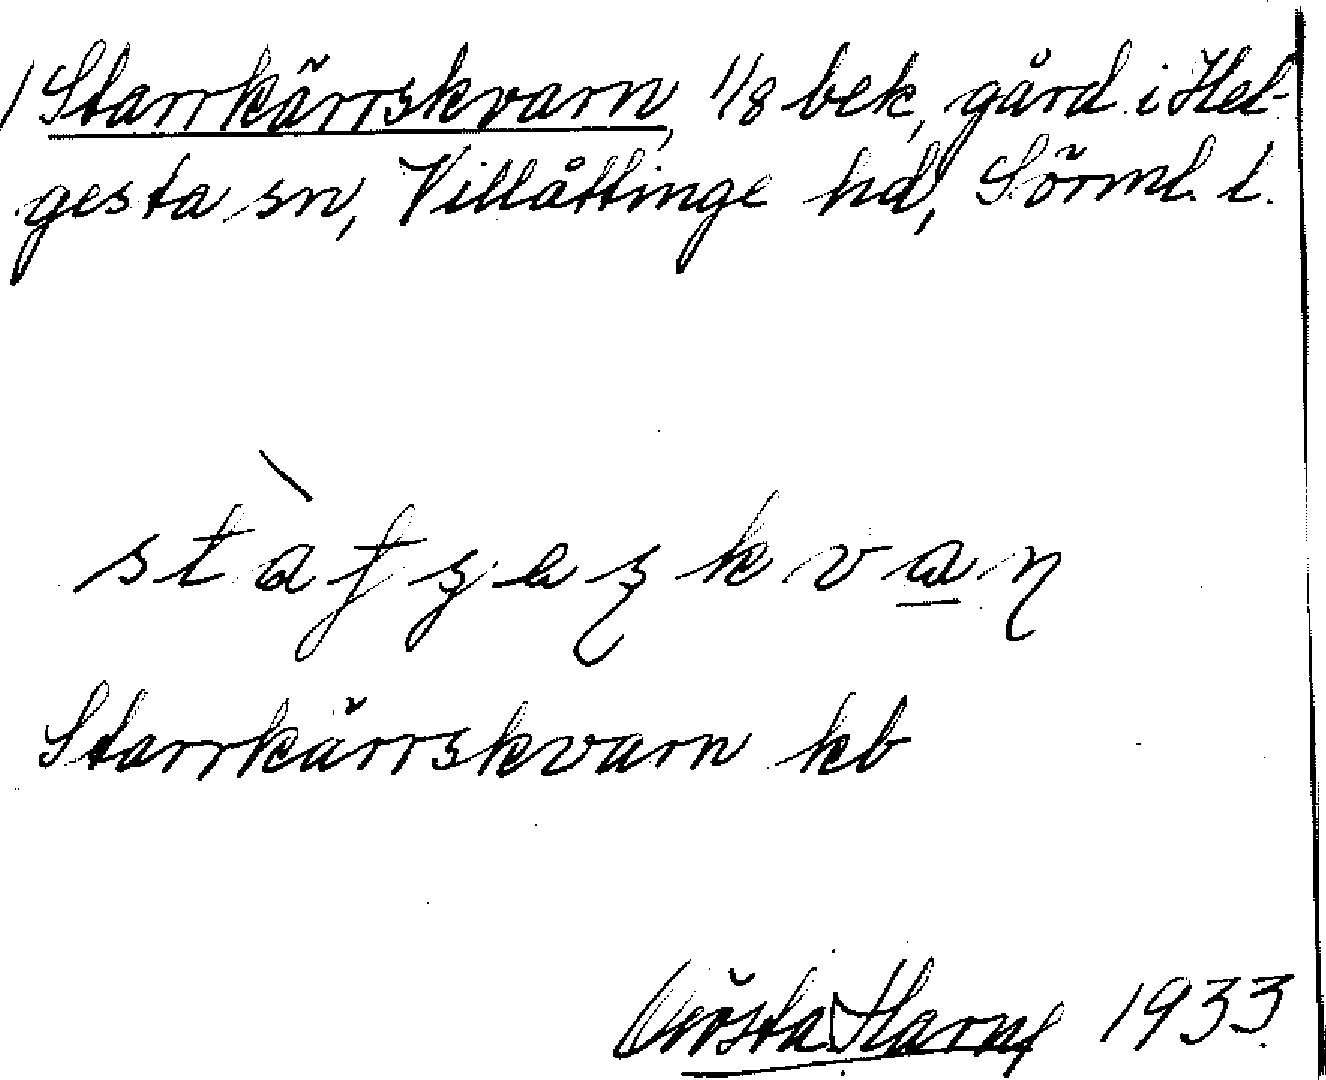 1 Starrkärrskvarn, 1/8 bek, gård i Hel-
gesta sn, Villåttinge hd, Sörml. l.
Starrkärrskvarn kb
Gösta Harnf 1933